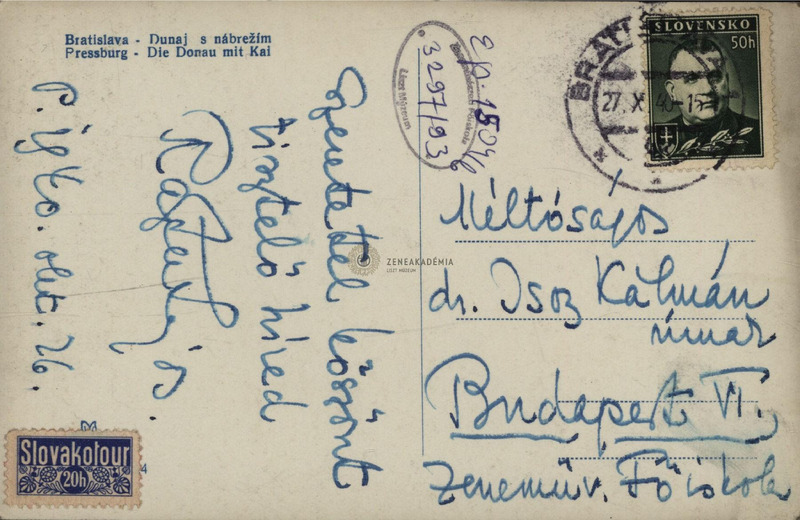 Bratislava - Dunaj s nábrežím
Pressburg - Die Donau mit Kai
Szeretettel köszönt
tisztelő híved
P. 1940. okt. 26.
Slovakotour
20h
4
3297/93
Liszt Múzeum
ZENEAKADÉMIA
LISZT MÚZEUM
SLOVENSKO
50h
27. X. 40-15
Méltóságos
dr. Isoz Kálmán
úrnak
Budapest VI.,
Zeneműv. Főiskola